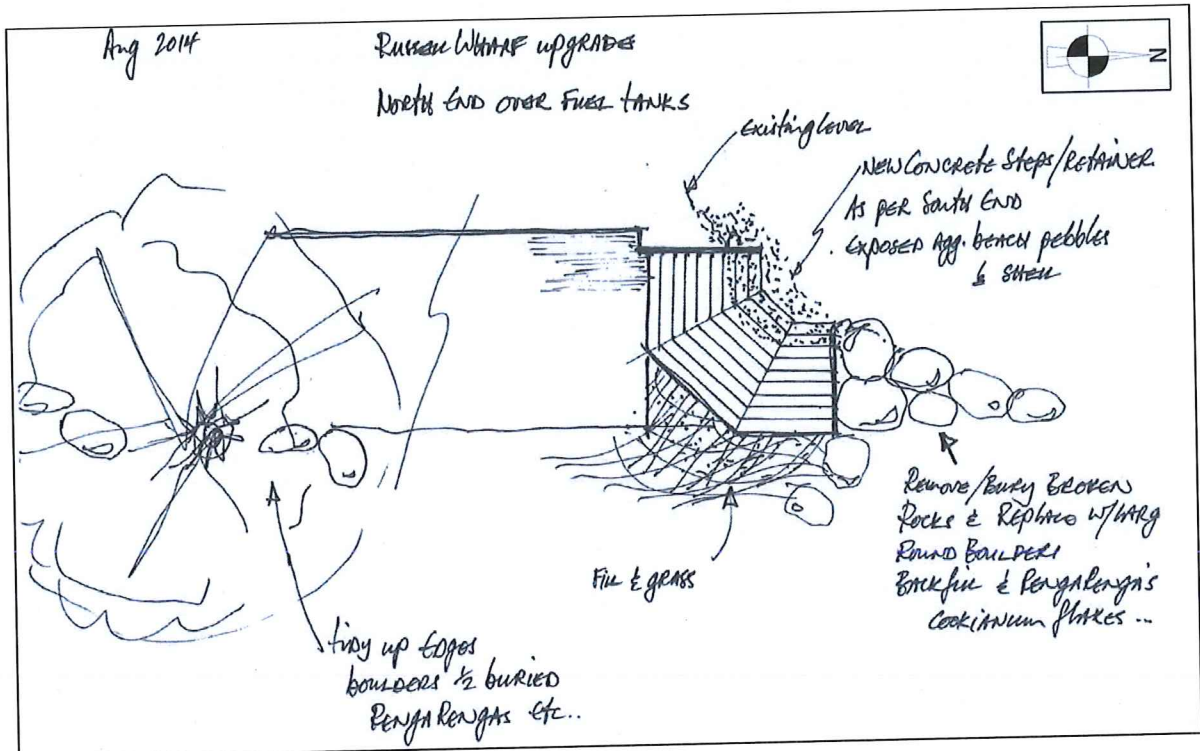 Aug 2014
Russell Wharf upgrade
North End over Fuel tanks
N
Existing level
New Concrete Steps/Retainer
As per South End
Exposed Agg. beach pebbles
& shell
Remove/Bury Broken
Rocks & Replace w/larg
Round Boulders
Backfill & RengaRenga's
Cookianum flaxes ...
Fill & grass
tidy up Edges
boulders ½ buried
RengaRengas etc..